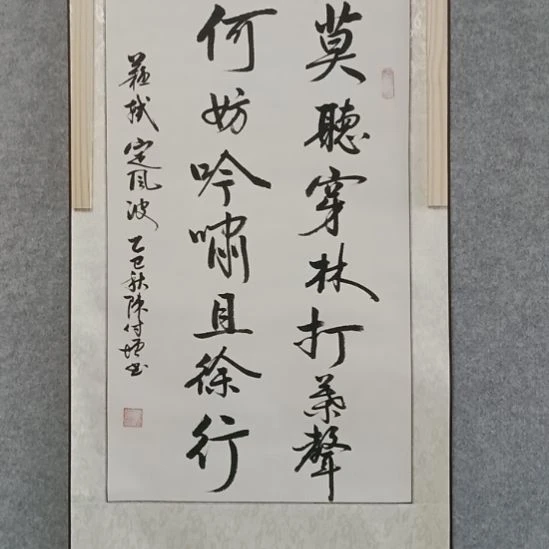 莫聽穿林打葉聲
何妨吟嘯且徐行
蘇軾定風波乙巳秋陳付增書